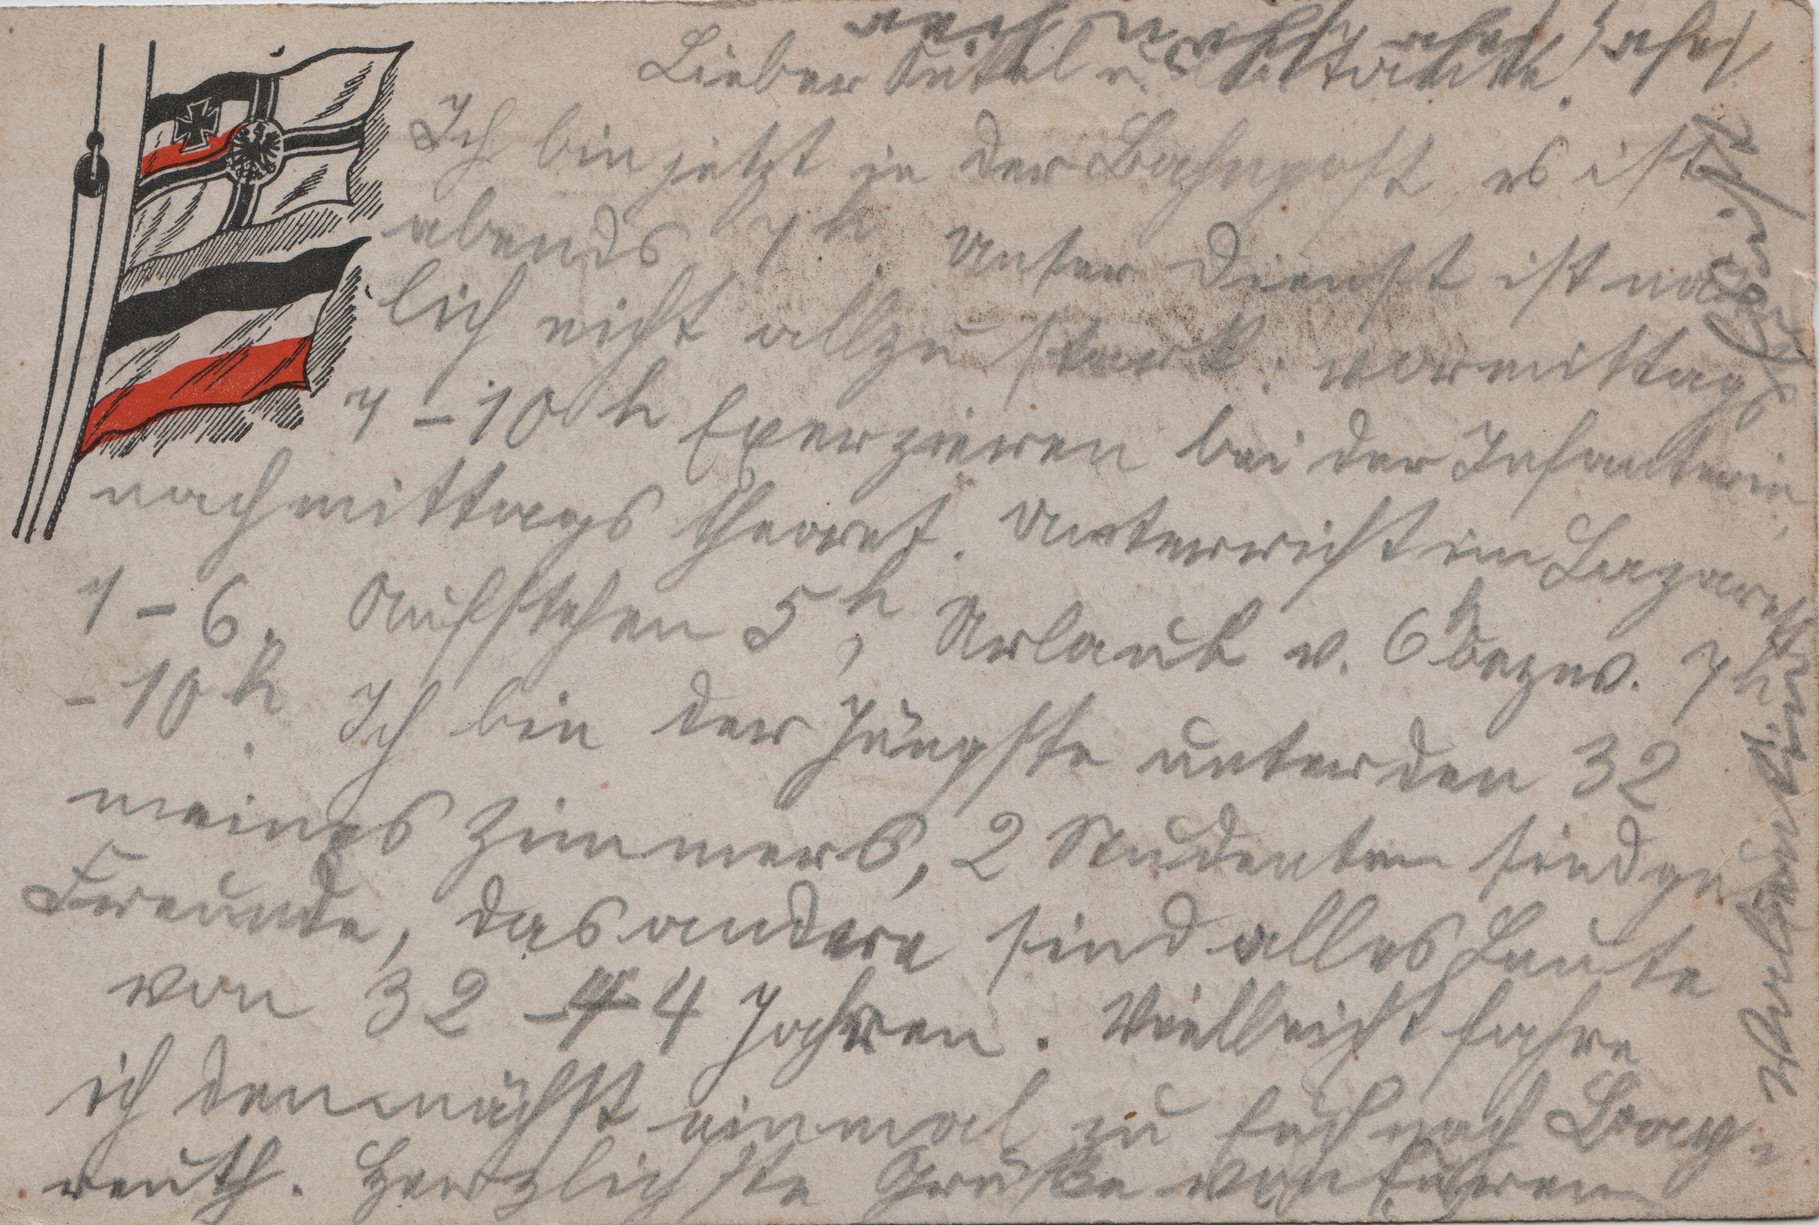 Lieber Onkel u. Tante.
Ich bin jetzt in der Bahnpost, es ist
abends 7 h. Unser Dienst ist
lich nicht allzu stark: vormittags
7 – 10 h Exerzieren bei der Infanterie,
nachmittags theoret. Unterricht im Lazarett
1 – 6. Aufstehen 5 h, Urlaub v. 6 h bezw. 7 h
– 10 h. Ich bin der Jüngste unter den 32
meines Zimmers, 2 Studenten sind
Freunde, das andere sind alles Leute
von 32 – 44 Jahren. Vielleicht fahre
ich demnächst einmal zu Euch nach Bay-
reuth. Herzlichste Grüße von Eurem